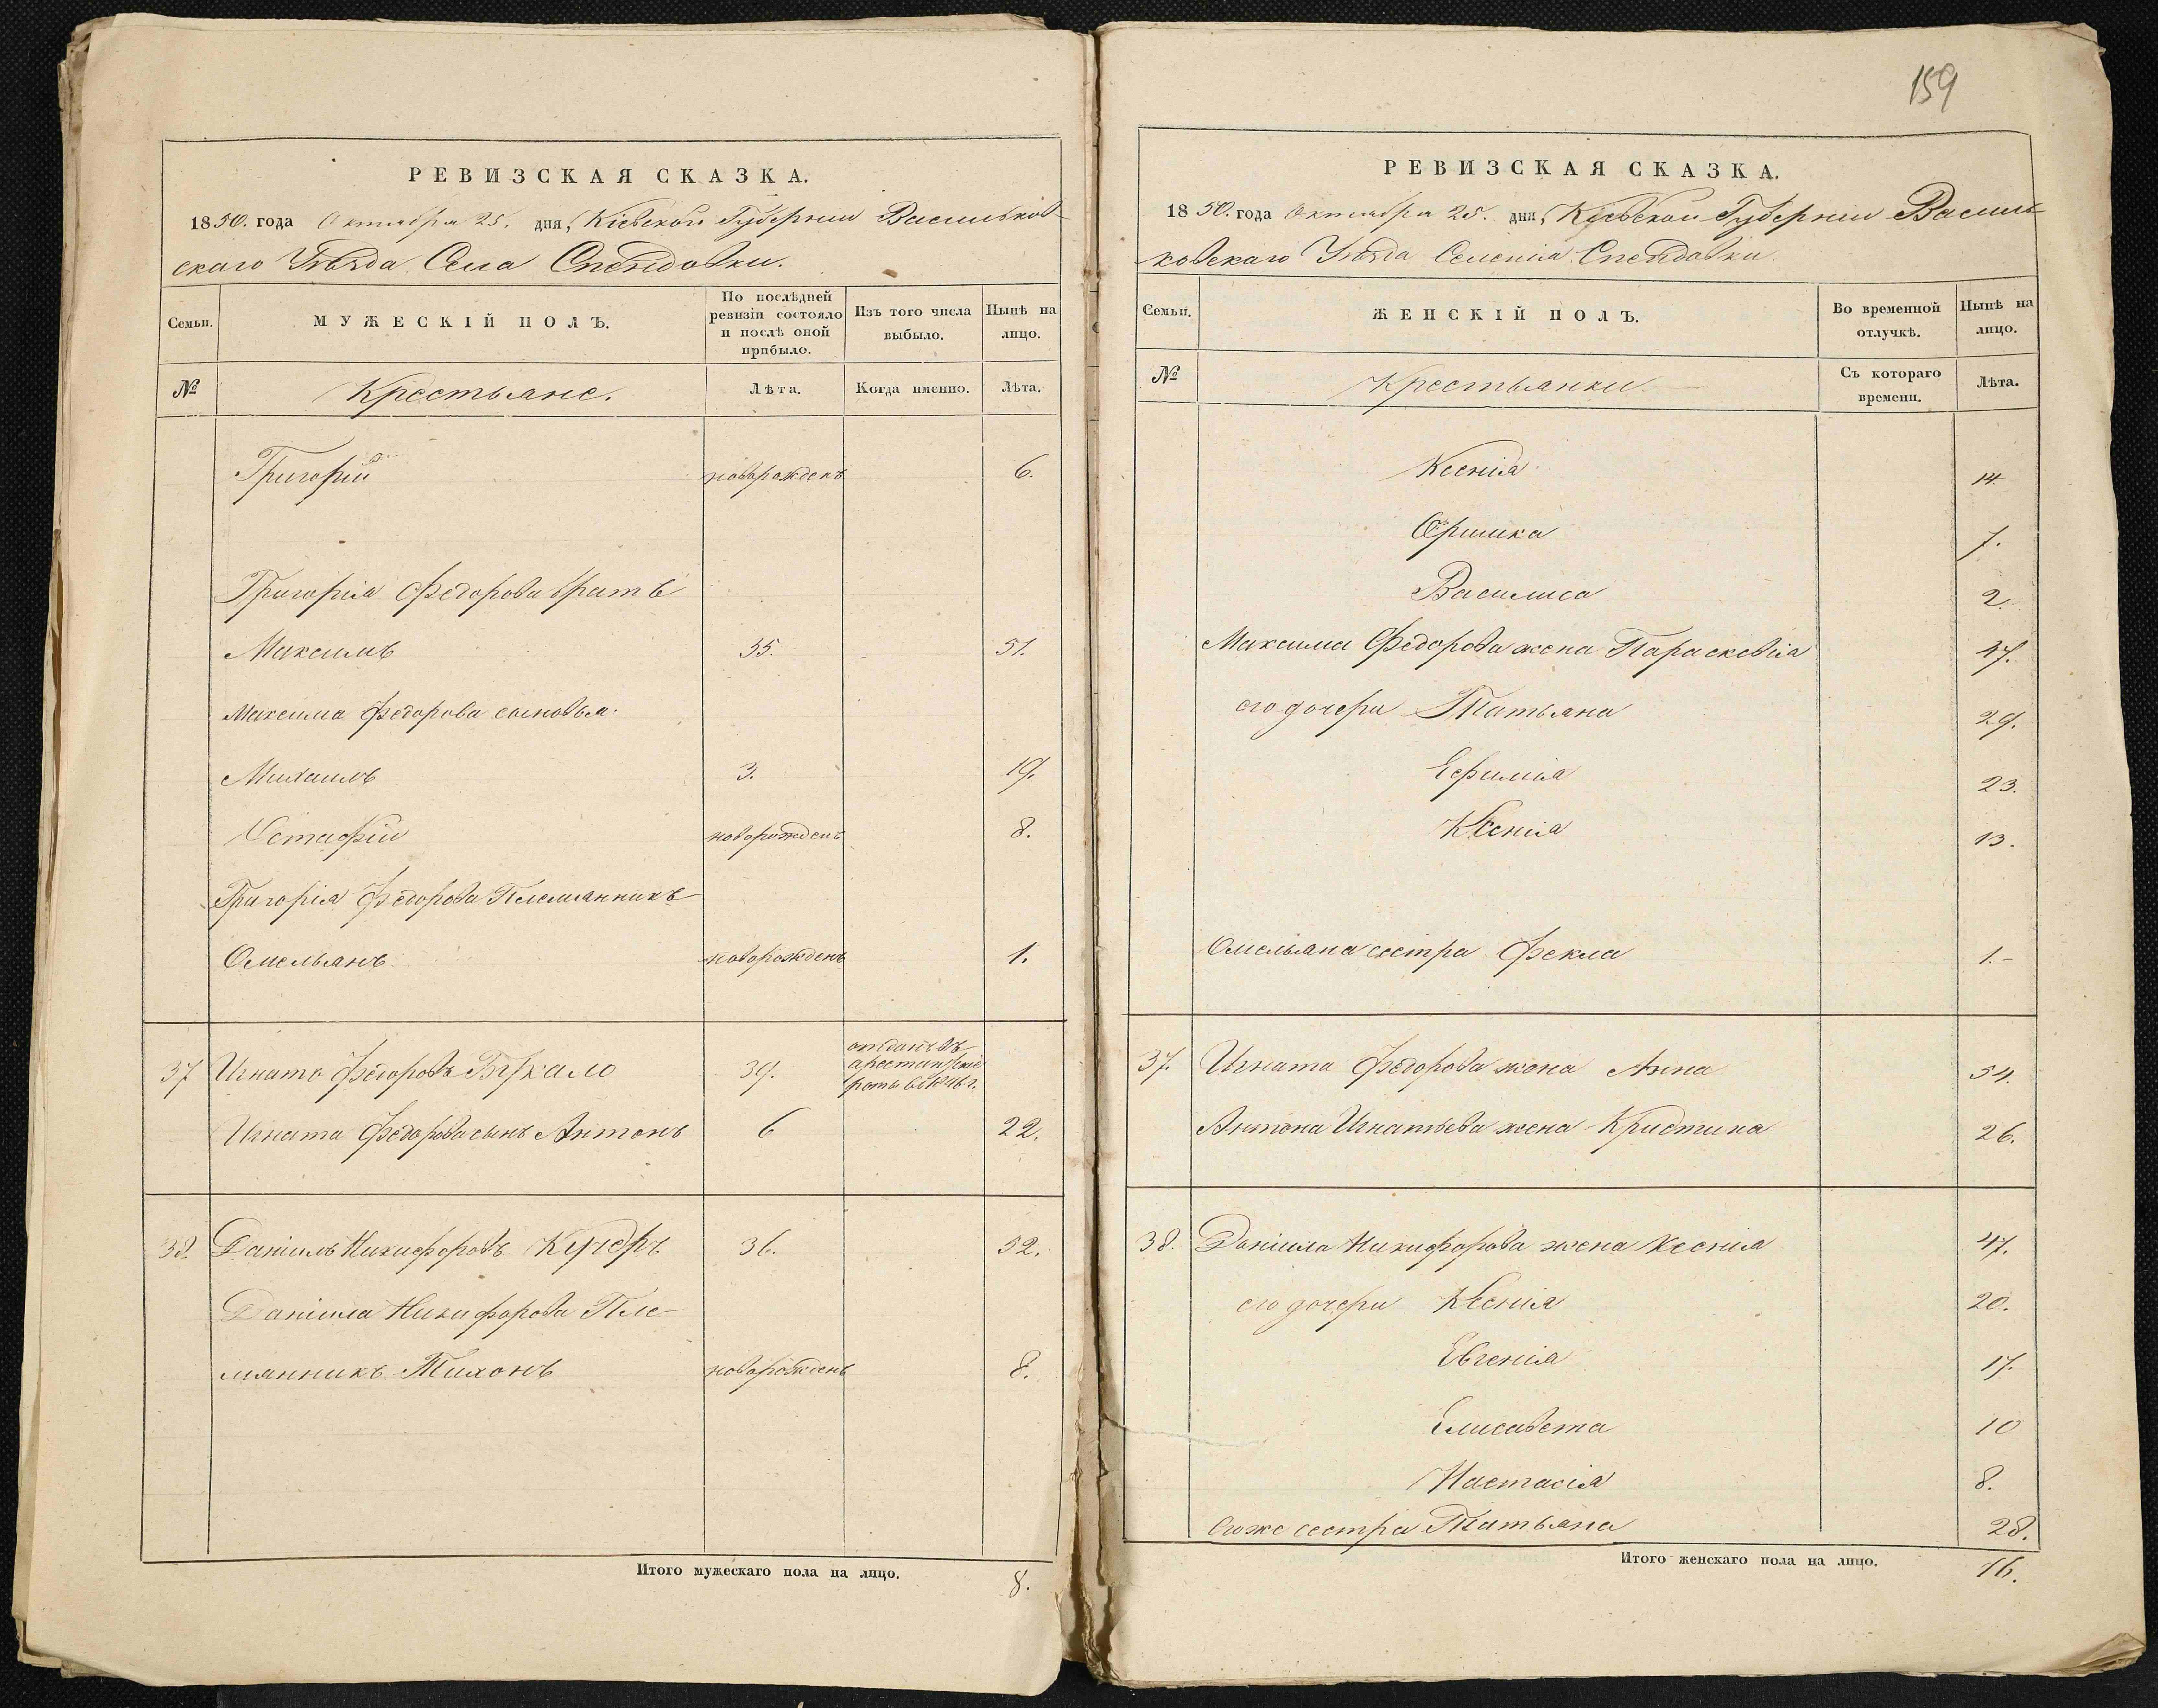 159
РЕВИЗСКАЯ СКАЗКА.
1850. года Октября 25. дня, Кіевской Губерніи Васильков-
скаго Уѣзда Села Спендовки.
Семьи.
МУЖЕСКІЙ ПОЛЪ.
По послѣдней
ревизіи состояло
и послѣ оной
прибыло.
Изъ того числа
выбыло.
Нынѣ на
лицо.
№
Крестьяне.
Лѣта.
Когда именно.
Лѣта.
Григорій новорожденъ 6.
Григорія Федорова братъ
Максимъ 35. 51.
Максима Федорова сыновья.
Михаилъ 3. 19.
Устафій новорожденъ 8.
Григорія Федорова Племянникъ
Омельянъ новорожденъ 1.
37 Игнатъ Федоровъ 39. отданъ въ
арестантскіе
роты
Игната Федорова сынъ Антонъ 6 22.
38. Даніилъ Никифоровъ Кучеръ 36. 52.
Даніила Никифорова Пле-
мянникъ Тихонъ новорожденъ 8.
Итого мужескаго пола на лицо. 8.
РЕВИЗСКАЯ СКАЗКА.
1850. года Октября 25. дня, Кіевской Губерніи Василь-
ковскаго Уѣзда Селенія Спендовки.
Семьи.
ЖЕНСКІЙ ПОЛЪ.
Во временной
отлучкѣ.
Нынѣ на
лицо.
№
Крестьянки
Съ котораго
времени.
Лѣта.
Ксенія 14
Оришка 7.
Василиса 2.
Максима Федорова жена Параскевія 47.
его дочери Татьяна 29.
Ефимія 23.
Ксенія 13.
Омельяна сестра Фекла 1.-
37. Игната Федорова жена Анна 54.
Антона Игнатьева жена Кристина 26.
38. Даніила Никифорова жена Ксенія 47.
его дочери Ксенія 20.
Евгенія 17.
Елисавета 10
Настасія 8.
Егоже сестра Татьяна 28.
Итого женскаго пола на лицо. 16.